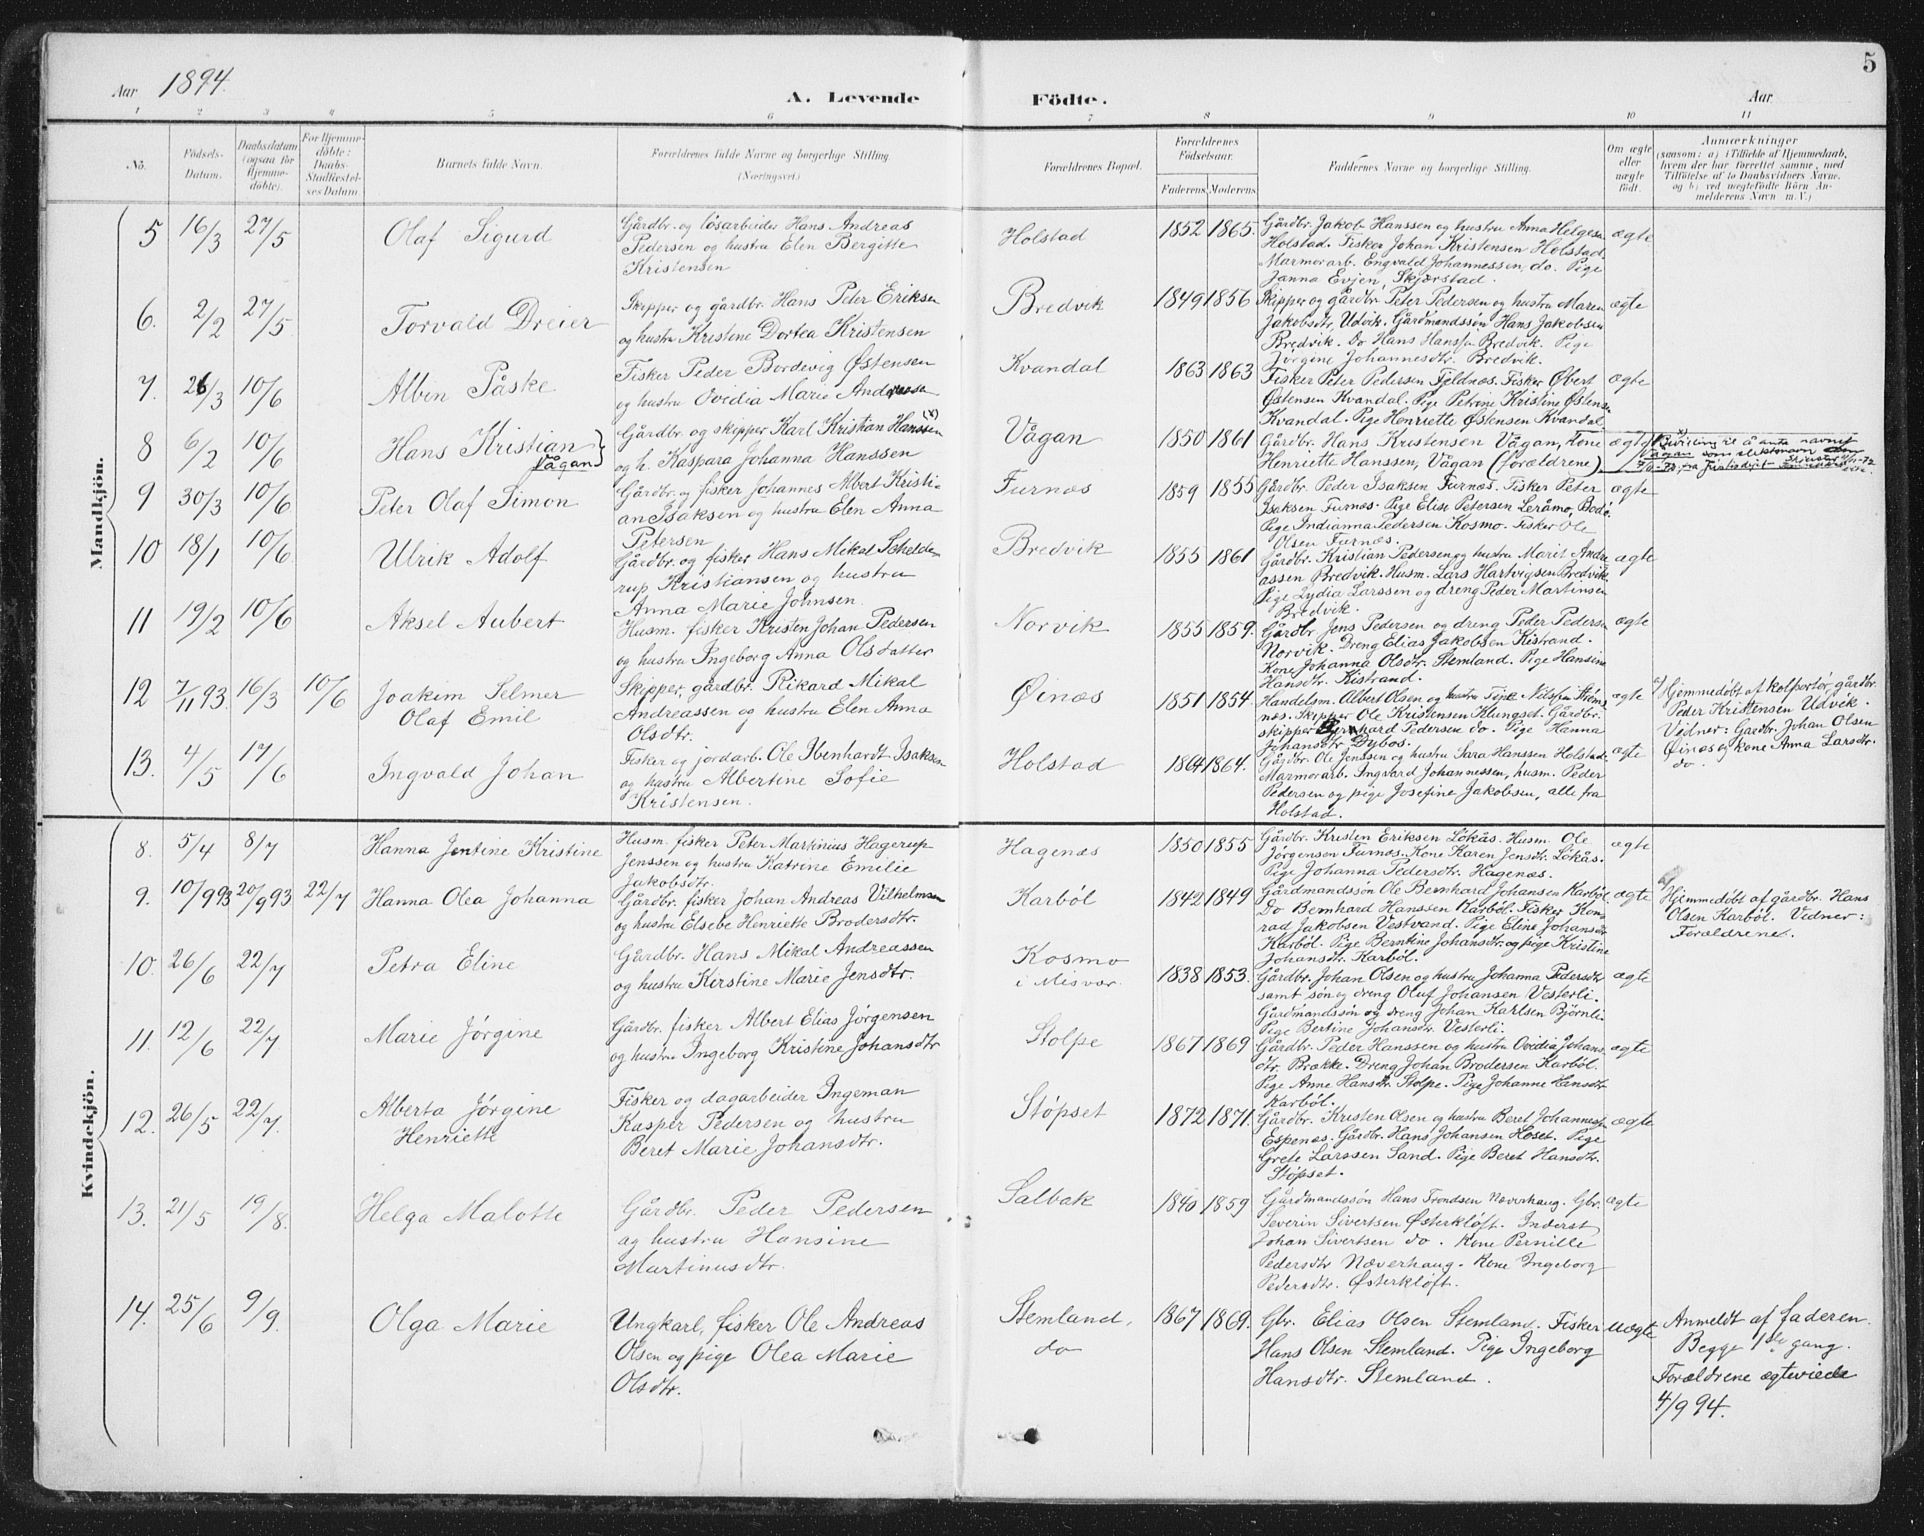 Aar 1894.
A. Levende Födte.
Aar
5
1 2 3 4 5 6 7 8 9 10 11
No.
Födsels-Datum.
Daabsdatum (ogsaa for Hjemmedöbte).
For Hjemmedöbte: Daabs-Stadfæstelses Datum.
Barnets fulde Navn.
Forældrenes fulde Navne og borgerlige Stilling.
(Næringsvei.)
Forældrenes Bopæl.
Forældrenes Födselsaar.
Faderens. Moderens.
Faddernes Navne og borgerlige Stilling.
Om ægte eller uægte födt.
Anmærkninger
(saasom: a) i Tilfælde af Hjemmedaab,
hvem der har forrettet samme, med
Tilföielse af to Daabsvidners Navne,
og b) ved uægtefödte Börn Anmelderens Navn m. V.)
Mandkjön.
5 16/3 27/5 Olaf Sigurd
Gårdbr. og løsarbeider Hans Andreas
Pedersen og hustru Elen Bergitte
Kristensen
Holstad 1852 1865.
Gårdbr. Jakob Hanssen og hustru Anna Helgesen
Holstad. Fisker Johan Kristensen Holstad
Marmorarb. Engvald Johannessen, do. Pige
Janna Evjen, Skjærstad.
ægte
6. 2/2 27/5 Torvald Dreier
Skipper og gårdbr. Hans Peter Eriksen
og hustru Kristine Dortea Kristensen
Bredvik 1849 1856
Skipper og gårdbr. Peter Pedersen og hustru Maren
Jakobsdtr, Udvik. Gårdmandssøn Hans Jakobsen
Bredvik. Do Hans Hanssen Bredvik. Pige
Jörgine Johannesdtr. Bredvik.
ægte
7. 26/3 10/6 Albin Påske
Fisker Peder Bordevig Østensen
og hustru Ovidia Marie Andersen
Kvandal 1863 1863
Fisker Peter Pedersen Fjeldnæs. Fisker Øbert
Østensen Kvandal. Pige Petrine Kristine Østensen
Kvandal. Pige Henriette Østensen Kvandal
ægte
8 6/2 10/6 Hans Kristian
Vågan
Gårdbr. og skipper Karl Kristian Hanssen (x)
og h. Kaspara Johanna Hanssen
Vågan 1850 1861
Gårdbr. Hans Kristensen Vågan, Kone
Henriette Hanssen, Vågan (forældrene)
ægte
x) Bevilling til å anta navnet
Vågan som slektsnavn
fra Justisdept.
9 30/3 10/6 Peter Olaf Simon
Gårdbr. og fisker Johannes Albert Kristi-
an Isaksen og hustru Elen Anna
Petersen
Furnæs 1859 1855
Gårdbr. Peder Isaksen Furnæs. Fisker Peter
Isaksen Furnæs. Pige Elise Petersen Leråmo, Bodø.
Pige Indianna Pedersen Kosmo. Fisker Ole
Olsen Furnæs.
ægte
10 18/1 10/6 Ulrik Adolf
Gårdbr. og fisker Hans Mikal Schelde-
rup Kristiansen og hustru
Anna Marie Johnsen.
Bredvik 1855 1861
Gårdbr. Kristian Pedersen og hustru Marit Andre
assen Bredvik. Husm. Lars Hartvigsen Bredvik
Pige Lydia Larssen og dreng Peder Martinsen
Bredvik.
ægte
11 19/2 10/6 Aksel Aubert
Husm. fisker Kristen Johan Pedersen
og hustru Ingeborg Anna Olsdatter
Norvik 1855 1859.
Gårdbr. Jens Pedersen og dreng Peder Pedersen
Norvik. Dreng Elias Jakobsen Kistrand.
Kone Johanna Olsdtr. Stemland. Pige Hansine
Hansdtr. Kistrand.
ægte
12 7/11 93. 16/3 10/6 Joakim Selmer
Olaf Emil
Skipper, gårdbr. Rikard Mikal
Andreassen og hustru Elen Anna
Olsdtr.
Øinæs 1851 1854.
Handelsm. Albert Olsen og hustru Tine Nielsen Strøms-
næs. Skipper Ole Kristensen Klungset. Gårdbr.
skipper Bernhard Pedersen do. Pige Hanna
Johansdtr. Dybos.
ægte
a) Hjemmedøbt af kolportør, gårdbr.
Peder Kristensen Udvik.
Vidner: Gårdbr. Johan Olsen
Øinæs og kone Anna Larsdtr.
do.
13. 4/5 17/6 Ingvald Johan
Fisker og jordarb. Ole Ibenhardt Isaksen
og hustru Albertine Sofie
Kristensen.
Holstad 1864 1864.
Gårdbr. Ole Jenssen og hustru Sara Hanssen Holstad.
Marmorarb. Ingvard Johannessen, husm. Peder
Pedersen og pige Josefine Jakobsen, alle fra
Holstad.
ægte
Kvindekjön.
8. 5/4 8/7 Hanna Jentine Kristine
Husm. fisker Peter Martinius Hagerup
Jenssen og hustru Katrine Emilie
Jakobsdtr.
Hagenæs 1850 1855
Gårdbr. Kristen Eriksen Løkås. Husm. Ole
Jørgensen Furnæs. Kone Karen Jensdtr. Løkås.
Pige Johanna Pedersdtr. Hagenæs.
ægte
9. 10/9 93 20/9 93 22/7 Hanna Olea Johanna
Gårdbr. fisker Johan Andreas Vilhelmsen
og hustru Elsebe Henriette Brodersdtr.
Karbøl 1842 1849
Gårdmandssøn Ole Bernhard Johansen Karbøl
Do Bernhard Hanssen Karbøl. Fisker Kon
rad Jakobsen Vestvand. Pige Eline Johansdtr
Karbøl. Pige Berntine Johansdtr. og pige Kristine
Johansdtr. Karbøl.
ægte
a) Hjemmedøbt af gårdbr. Hans
Olsen Karbøl. Vidner:
Forældrene.
10. 26/6 22/7 Petra Eline
Gårdbr. Hans Mikal Andreassen
og hustru Kirstine Marie Jensdtr.
Kosmo
i Misvær. 1838 1853.
Gårdbr. Johan Olsen og hustru Johanna Pedersdtr
samt søn og dreng Oluf Johansen Vesterli.
Gårdmandssøn og dreng Johan Karlsen Bjørnli.
Pige Bertine Johansdtr. Vesterli.
ægte
11. 12/6 22/7 Marie Jørgine
Gårdbr. fisker Albert Elias Jørgensen
og hustru Ingeborg Kristine Johansdtr
Stolpe 1867 1869
Gårdbr. Peder Hanssen og hustru Ovidia Johans-
dtr. Brække. Dreng Johan Brodersen Karbøl.
Pige Anne Hansdtr Stolpe. Pige Johanne Hansdtr.
Karbøl.
ægte
12. 26/5 22/7. Alberta Jørgine
Henriette
Fisker og dagarbeider Ingeman
Kasper Pedersen og hustru
Beret Marie Johansdtr.
Støpset 1872 1871.
Gårdbr. Kristen Olsen og hustru Beret Johannesen
Espenæs. Gårdbr. Hans Johansen Hoset. Pige
Grete Larssen Sand. Pige Beret Hansdtr.
Støpset.
ægte
13. 21/5 19/8. Helga Malotte
Gårdbr. Peder Pedersen
og hustru Hansine
Martinusdtr.
Salbak 1840 1859
Gårdmandssøn Hans Trondsen Næverhaug. Gbr.
Severin Sivertsen Østerkløft. Inderst
Johan Sivertsen do. Kone Pernille
Pedersdtr Næverhaug. Kone Ingeborg
Pedersdtr. Østerkløft.
ægte
14. 25/6 9/9. Olga Marie
Ungkarl, fisker Ole Andreas
Olsen og pige Olea Marie
Olsdtr.
Stemland,
do 1867 1869.
Gbr. Elias Olsen Stemland. Fisker
Hans Olsen Stemland. Pige Ingeborg
Hansdtr. Stemland.
uægte
Anmeldt af faderen.
Begge 1ste gang.
Forældrene ægteviede
4/9 94.